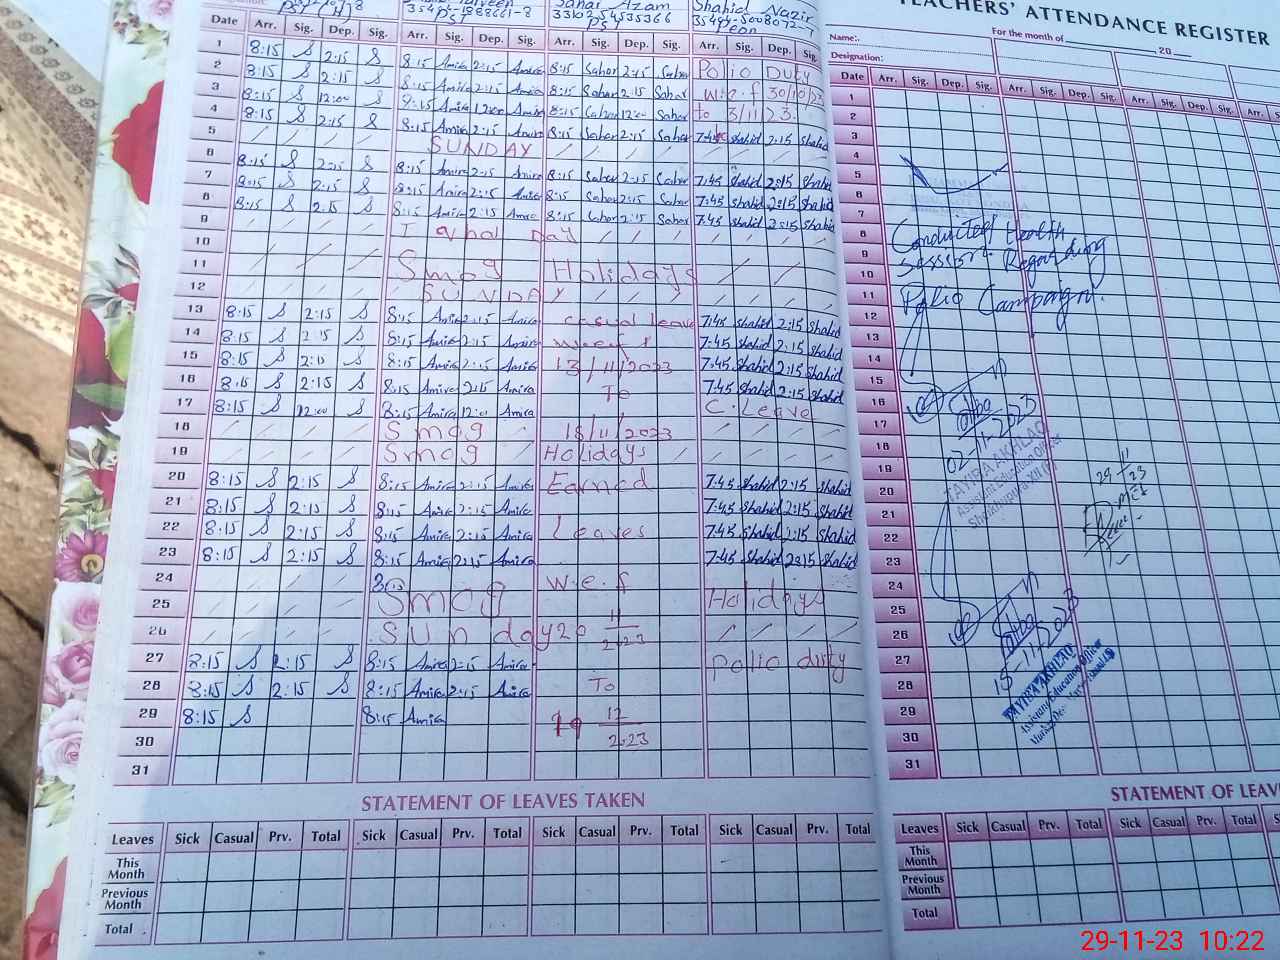 Sahar Azam
Shahid Nazir
PST
Peon
Date Arr. Sig. Dep. Sig. Arr. Sig. Dep. Sig. Arr. Sig. Dep. Sig. Arr. Sig. Dep. Sig.
1 8:15 S 2:15 S 8:15 Amira 2:15 Amira 8:15 Sahar 2:15 Sahar Polio Duty
2 8:15 S 2:15 S 8:15 Amira 2:15 Amira 8:15 Sahar 2:15 Sahar w.e.f 30/10/23
3 8:15 S 12:00 S 8:15 Amira 12:00 Amira 8:15 Sahar 12:00 Sahar to 3/11/23.
4 8:15 S 2:15 S 8:15 Amira 2:15 Amira 8:15 Sahar 2:15 Sahar 7:45 Shahid 2:15 Shahid
5 SUNDAY
6 8:15 S 2:15 S 8:15 Amira 2:15 Amira 8:15 Sahar 2:15 Sahar 7:45 Shahid 2:15 Shahid
7 8:15 S 2:15 S 8:15 Amira 2:15 Amira 8:15 Sahar 2:15 Sahar 7:45 Shahid 2:15 Shahid
8 8:15 S 2:15 S 8:15 Amira 2:15 Amira 8:15 Sahar 2:15 Sahar 7:45 Shahid 2:15 Shahid
9 Iqbal Day
10
11 Smog Holidays
12 SUNDAY
13 8:15 S 2:15 S 8:15 Amira 2:15 Amira casual leave 7:45 Shahid 2:15 Shahid
14 8:15 S 2:15 S 8:15 Amira 2:15 Amira w.e.f 7:45 Shahid 2:15 Shahid
15 8:15 S 2:15 S 8:15 Amira 2:15 Amira 13/11/2023 7:45 Shahid 2:15 Shahid
16 8:15 S 2:15 S 8:15 Amira 2:15 Amira To 7:45 Shahid 2:15 Shahid
17 8:15 S 12:00 S 8:15 Amira 12:00 Amira C. Leave
18 Smog 18/11/2023
19 Smog Holidays
20 8:15 S 2:15 S 8:15 Amira 2:15 Amira Earned 7:45 Shahid 2:15 Shahid
21 8:15 S 2:15 S 8:15 Amira 2:15 Amira 7:45 Shahid 2:15 Shahid
22 8:15 S 2:15 S 8:15 Amira 2:15 Amira Leaves 7:45 Shahid 2:15 Shahid
23 8:15 S 2:15 S 8:15 Amira 2:15 Amira 7:45 Shahid 2:15 Shahid
24 w.e.f
25 Smog Holidays
26 Sunday 20 11/2023
27 8:15 S 2:15 S 8:15 Amira 2:15 Amira polio duty
28 8:15 S 2:15 S 8:15 Amira 2:15 Amira To
29 8:15 S 8:15 Amira 19 12/2023
30
31
STATEMENT OF LEAVES TAKEN
Leaves Sick Casual Prv. Total Sick Casual Prv. Total Sick Casual Prv. Total Sick Casual Prv. Total
This Month
Previous Month
Total
TEACHERS' ATTENDANCE REGISTER
Name:. For the month of 20
Designation:
Date Arr. Sig. Dep. Sig. Arr. Sig. Dep. Sig. Arr. Sig. Dep. Sig. Arr.
1
2
3
4
5
6
7
8
9
10
11
12
13
14
15
16
17
18
19
20
21
22
23
24
25
26
27
28
29
30
31
Conducted Health
Session Regarding
Polio Campaign.
02-11-2023
TAYIBA AKHLAQ
Assistant Education Officer
29 11/23
15-11-2023
TAYIBA AKHLAQ
Assistant Education Officer
STATEMENT OF LEAV
Leaves Sick Casual Prv. Total Sick Casual Prv. Total
This Month
Previous Month
Total
29-11-23 10:22